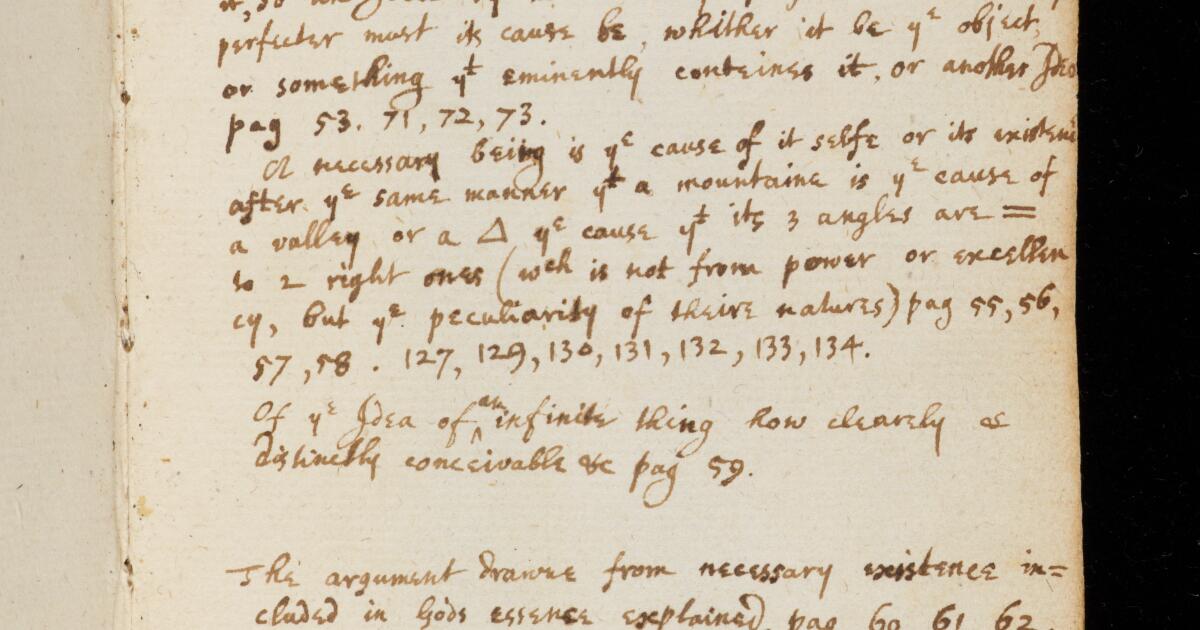 perfecter must its cause be, whither it be yᵉ object,
or something yᵗ eminently conteines it, or another Idea
pag 53. 71, 72, 73.
A necessary being is yᵉ cause of it selfe or its existence
after yᵉ same manner yᵗ a mountaine is yᵉ cause of
a valley or a △ yᵉ cause yᵗ its 3 angles are =
to 2 right ones (wᶜʰ is not from power or excellen
cy, but yᵉ peculiarity of theire natures) pag 55, 56,
57, 58. 127, 129, 130, 131, 132, 133, 134.
Of yᵉ Idea of ^an infinite thing how clearely &
distinctly conceivable &c pag 59.
The argument drawne from necessary existence in=
cluded in Gods essence explained pag 60 61 62.